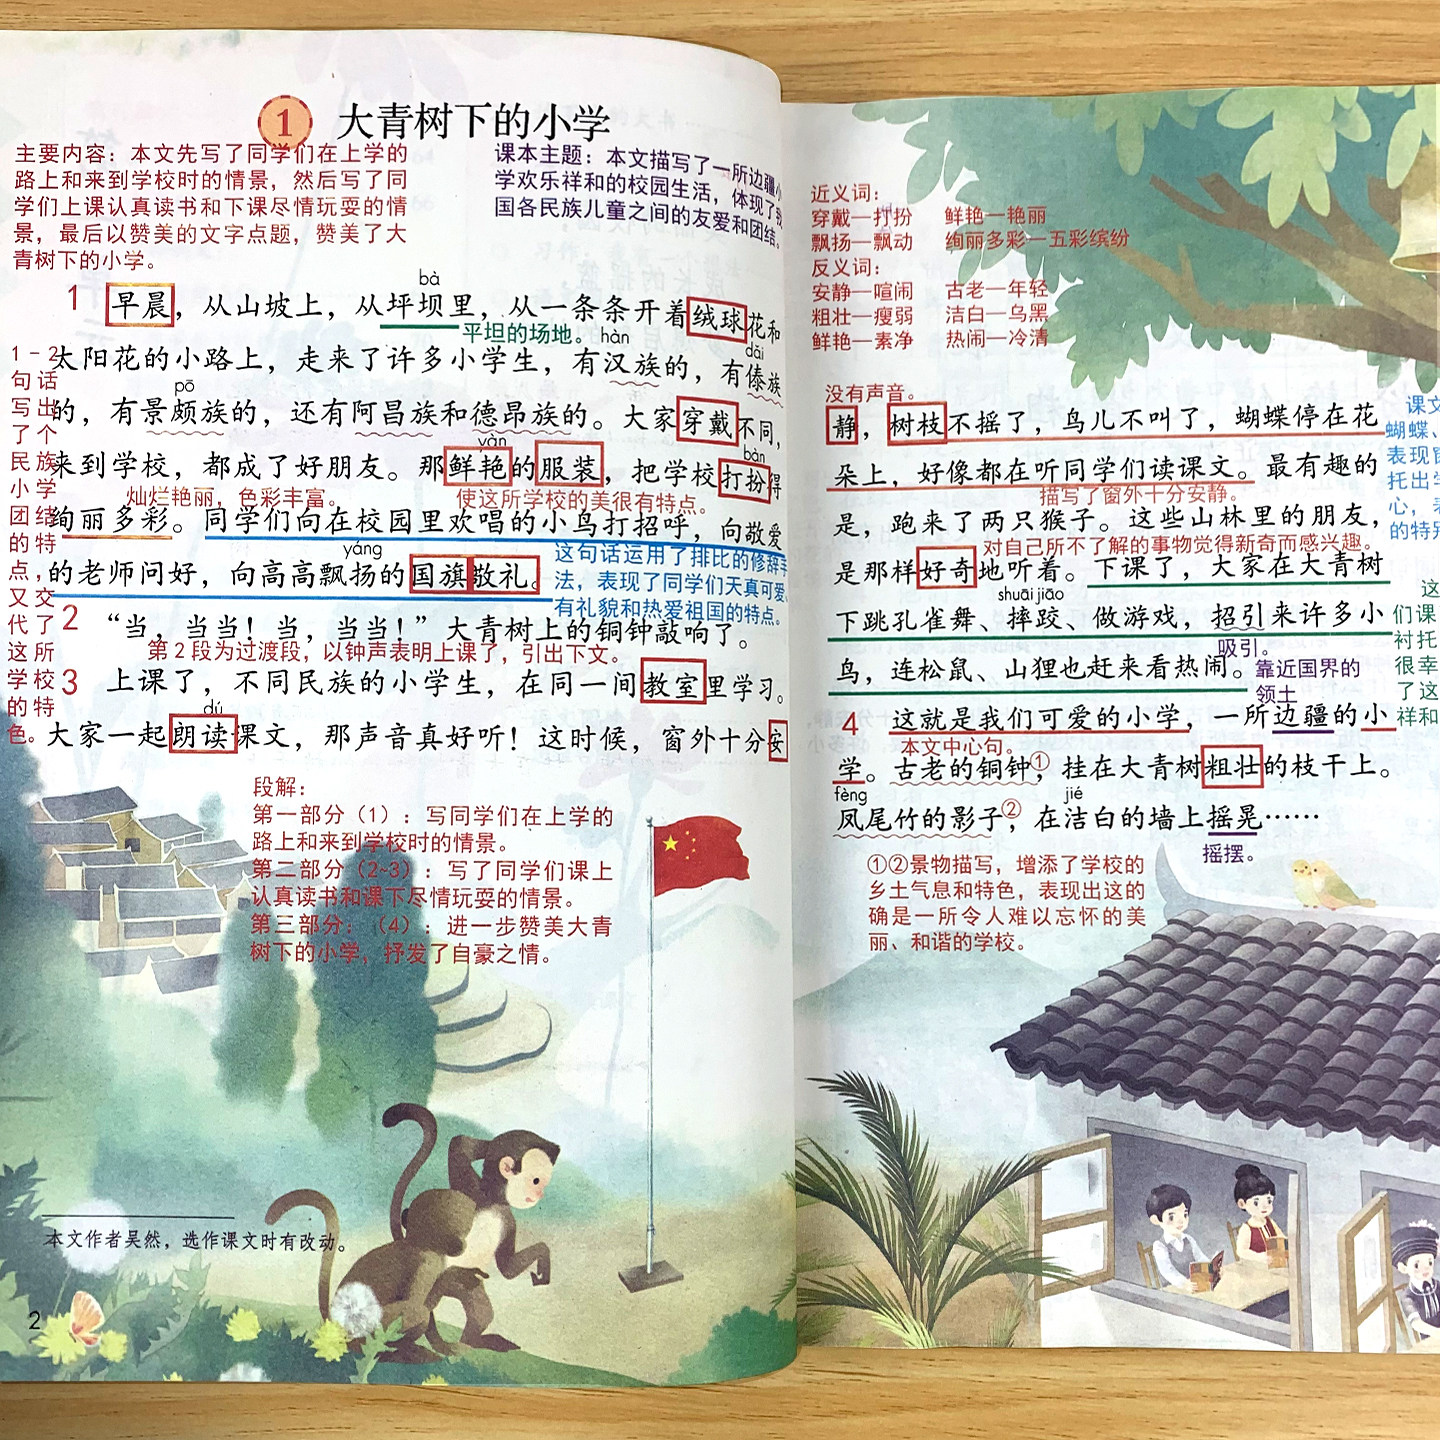 1 大青树下的小学
主要内容：本文先写了同学们在上学的
路上和来到学校时的情景，然后写了同
学们上课认真读书和下课尽情玩耍的情
景，最后以赞美的文字点题，赞美了大
青树下的小学。
课本主题：本文描写了一所边疆小
学欢乐祥和的校园生活，体现了我
国各民族儿童之间的友爱和团结。
bà
1 早晨，从山坡上，从坪坝里，从一条条开着绒球花和
平坦的场地。 hàn dǎi
太阳花的小路上，走来了许多小学生，有汉族的，有傣族
pō
的，有景颇族的，还有阿昌族和德昂族的。大家穿戴不同，
yàn bàn
来到学校，都成了好朋友。那鲜艳的服装，把学校打扮得
灿烂艳丽，色彩丰富。 使这所学校的美很有特点。
绚丽多彩。同学们向在校园里欢唱的小鸟打招呼，向敬爱
yáng
的老师问好，向高高飘扬的国旗敬礼。
这句话运用了排比的修辞手
法，表现了同学们天真可爱、
有礼貌和热爱祖国的特点。
1－2
句话
写出
了个
民族
小学
团结
的特
点，
又交
代了
这所
学校
的特
色。
2 “当，当当！当，当当！”大青树上的铜钟敲响了。
第2段为过渡段，以钟声表明上课了，引出下文。
3 上课了，不同民族的小学生，在同一间教室里学习。
dú
大家一起朗读课文，那声音真好听！这时候，窗外十分安
段解：
第一部分（1）：写同学们在上学的
路上和来到学校时的情景。
第二部分（2~3）：写了同学们课上
认真读书和课下尽情玩耍的情景。
第三部分：（4）：进一步赞美大青
树下的小学，抒发了自豪之情。
本文作者吴然，选作课文时有改动。
2
近义词：
穿戴—打扮 鲜艳—艳丽
飘扬—飘动 绚丽多彩—五彩缤纷
反义词：
安静—喧闹 古老—年轻
粗壮—瘦弱 洁白—乌黑
鲜艳—素净 热闹—冷清
没有声音。
静，树枝不摇了，鸟儿不叫了，蝴蝶停在花
朵上，好像都在听同学们读课文。最有趣的
描写了窗外十分安静。
是，跑来了两只猴子。这些山林里的朋友，
对自己所不了解的事物觉得新奇而感兴趣。
是那样好奇地听着。下课了，大家在大青树
shuāi jiāo
下跳孔雀舞、摔跤、做游戏，招引来许多小
吸引。
鸟，连松鼠、山狸也赶来看热闹。
靠近国界的
领土
课文
蝴蝶、
表现窗
托出学
心，表
的特别
这
们课
衬托
很幸
了这
祥和
4 这就是我们可爱的小学，一所边疆的小
本文中心句。
学。古老的铜钟①，挂在大青树粗壮的枝干上。
fèng jié
凤尾竹的影子②，在洁白的墙上摇晃……
摇摆。
①②景物描写，增添了学校的
乡土气息和特色，表现出这的
确是一所令人难以忘怀的美
丽、和谐的学校。